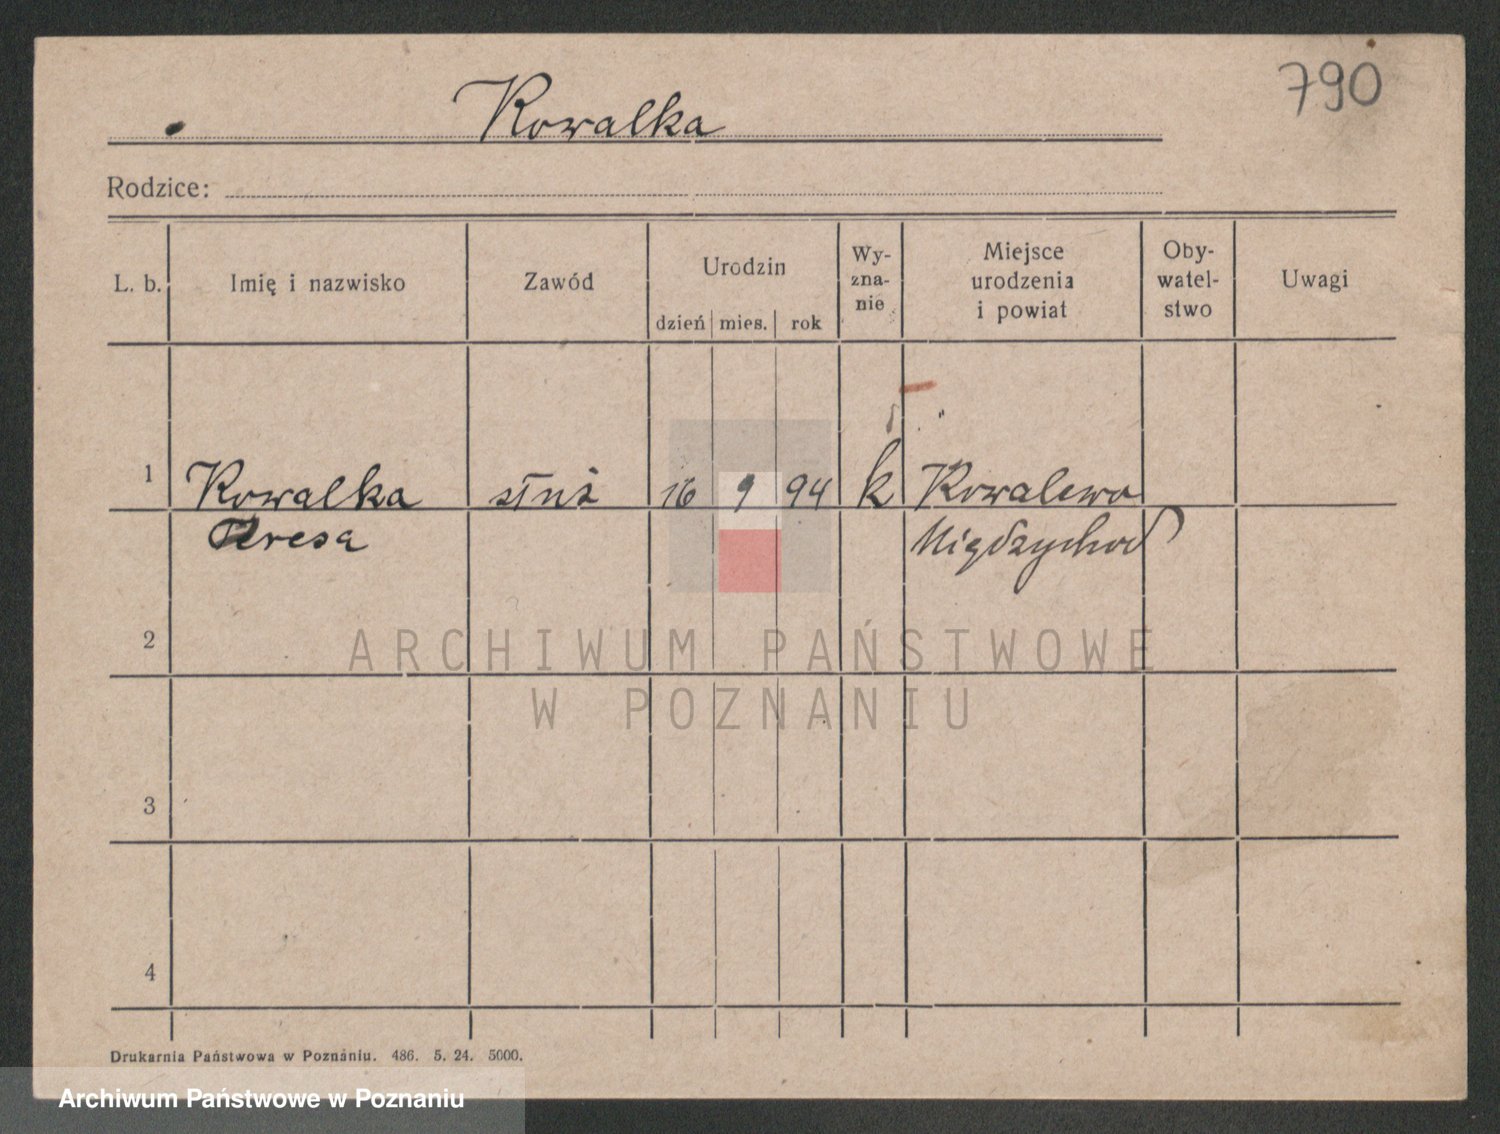 790
Kowalka
Rodzice:
L. b. Imię i nazwisko Zawód Urodzin dzień mies. rok Wy-zna-nie Miejsce urodzenia i powiat Oby-watel-stwo Uwagi
1 Kowalka służ 16 9 94 k Kowalewo
Teresa Międzychod
2
3
4
ARCHIWUM PAŃSTWOWE
W POZNANIU
Drukarnia Państwowa w Poznaniu. 486. 5. 24. 5000.
Archiwum Państwowe w Poznaniu